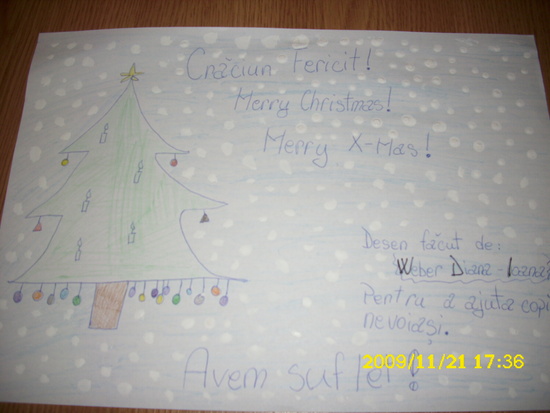 Crăciun Fericit!
Merry Christmas!
Merry X-Mas!
Desen făcut de:
Weber Diana-Ioana
Pentru a ajuta copi
nevoiași.
Avem suflet!
2009/11/21 17:36